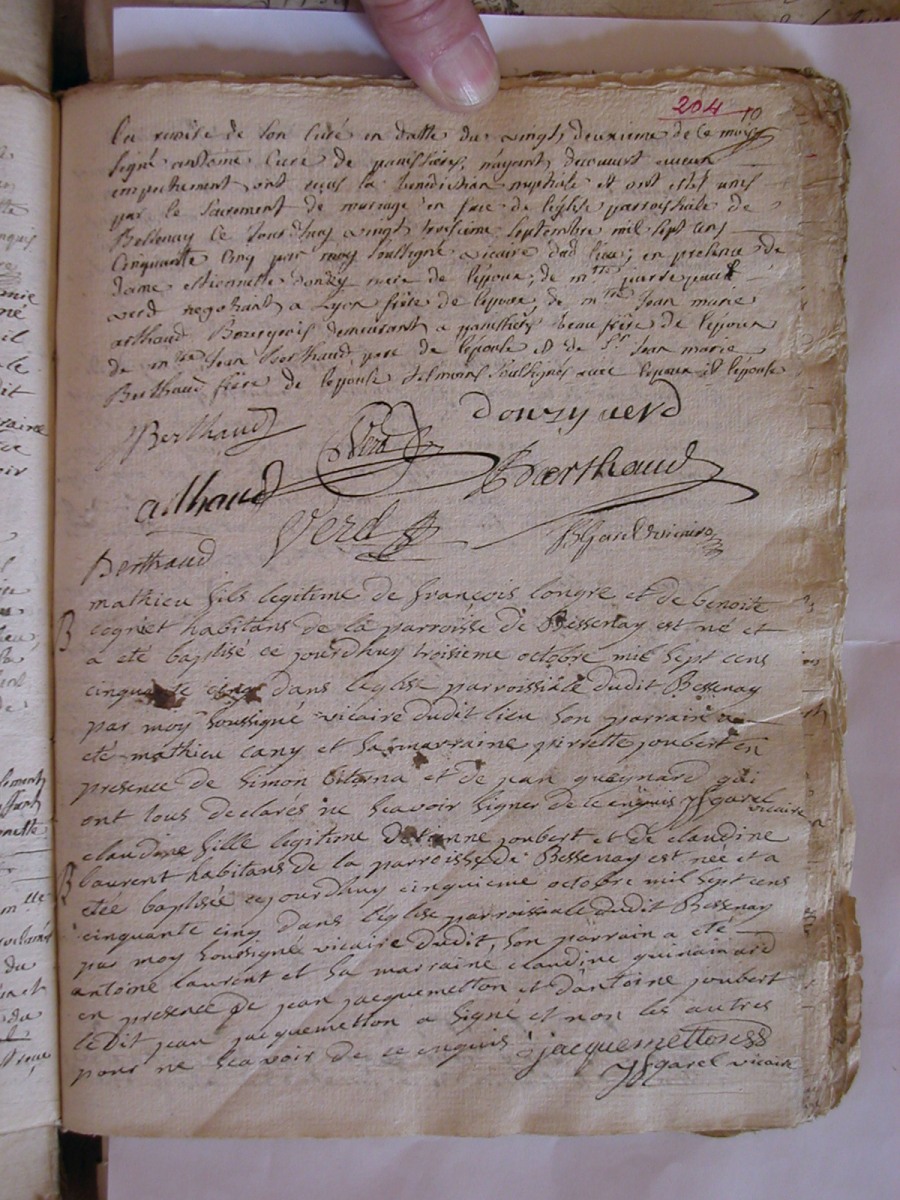 204 10
la remise de son Curé en datte du vingt deuxieme de ce mois
signé antoine Curé de panissieres, n'ayant decouvert aucun
empechement ont reçus la benediction nuptiale et ont estés unis
par le sacrement de mariage en face de l'eglise parroissiale de
Bessenay ce jourdhuy vingt troisieme septembre mil sept cens
Cinquante Cinq par moy soussigné vicaire dud lieu, en presence de
dame etiennette donzy mere de l'epoux, de mtre pierre
verd negotiant a Lyon frere de l'epoux, de mtre Jean marie
arthaud Bourgeois demeurant a panissieres beau frere de l'epoux
de mtre Jean Berthaud pere de l'epouse et de Sr Jean marie
Berthaud frere de l'epouse temoins soussignés avec l'epoux et l'epouse
Berthaud Verd Donzy verd
arthaud Berthaud
Berthaud Verd Garel vicaire
mathieu fils legitime de francois longre et de benoite
B cognet habitans de la parroisse de Bessenay est né et
a eté baptisé ce jourdhuy troisieme octobre mil sept cens
cinquante cinq dans l'eglise parroissiale dudit Bessenay
par moy soussigné vicaire dudit lieu son parrain a
eté mathieu cany et sa marraine pierrette joubert en
presence de simon biterna et de jean gueynard qui
ont tous declares ne scavoir signer de ce enquis garel vicaire
claudine fille legitime d'etienne joubert et de claudine
B laurent habitans de la parroisse de Bessenay est née et a
etée baptisée cejourdhuy cinquieme octobre mil sept cens
cinquante cinq dans l'eglise parroissiale dudit Bessenay
par moy soussigné vicaire dudit, son parrain a eté
antoine laurent et sa marraine claudine guinamard
en presence de jean jacquemetton et d'antoine joubert
ledit jean jacquemetton a signé et non les autres
pour ne scavoir de ce enquis jacquemetton
garel vicaire